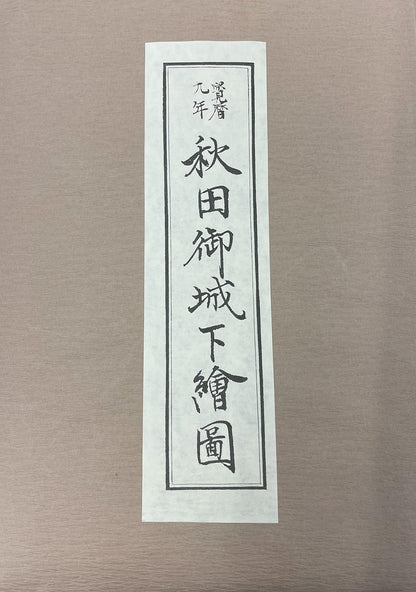 寶暦
九年
秋田御城下繪圖